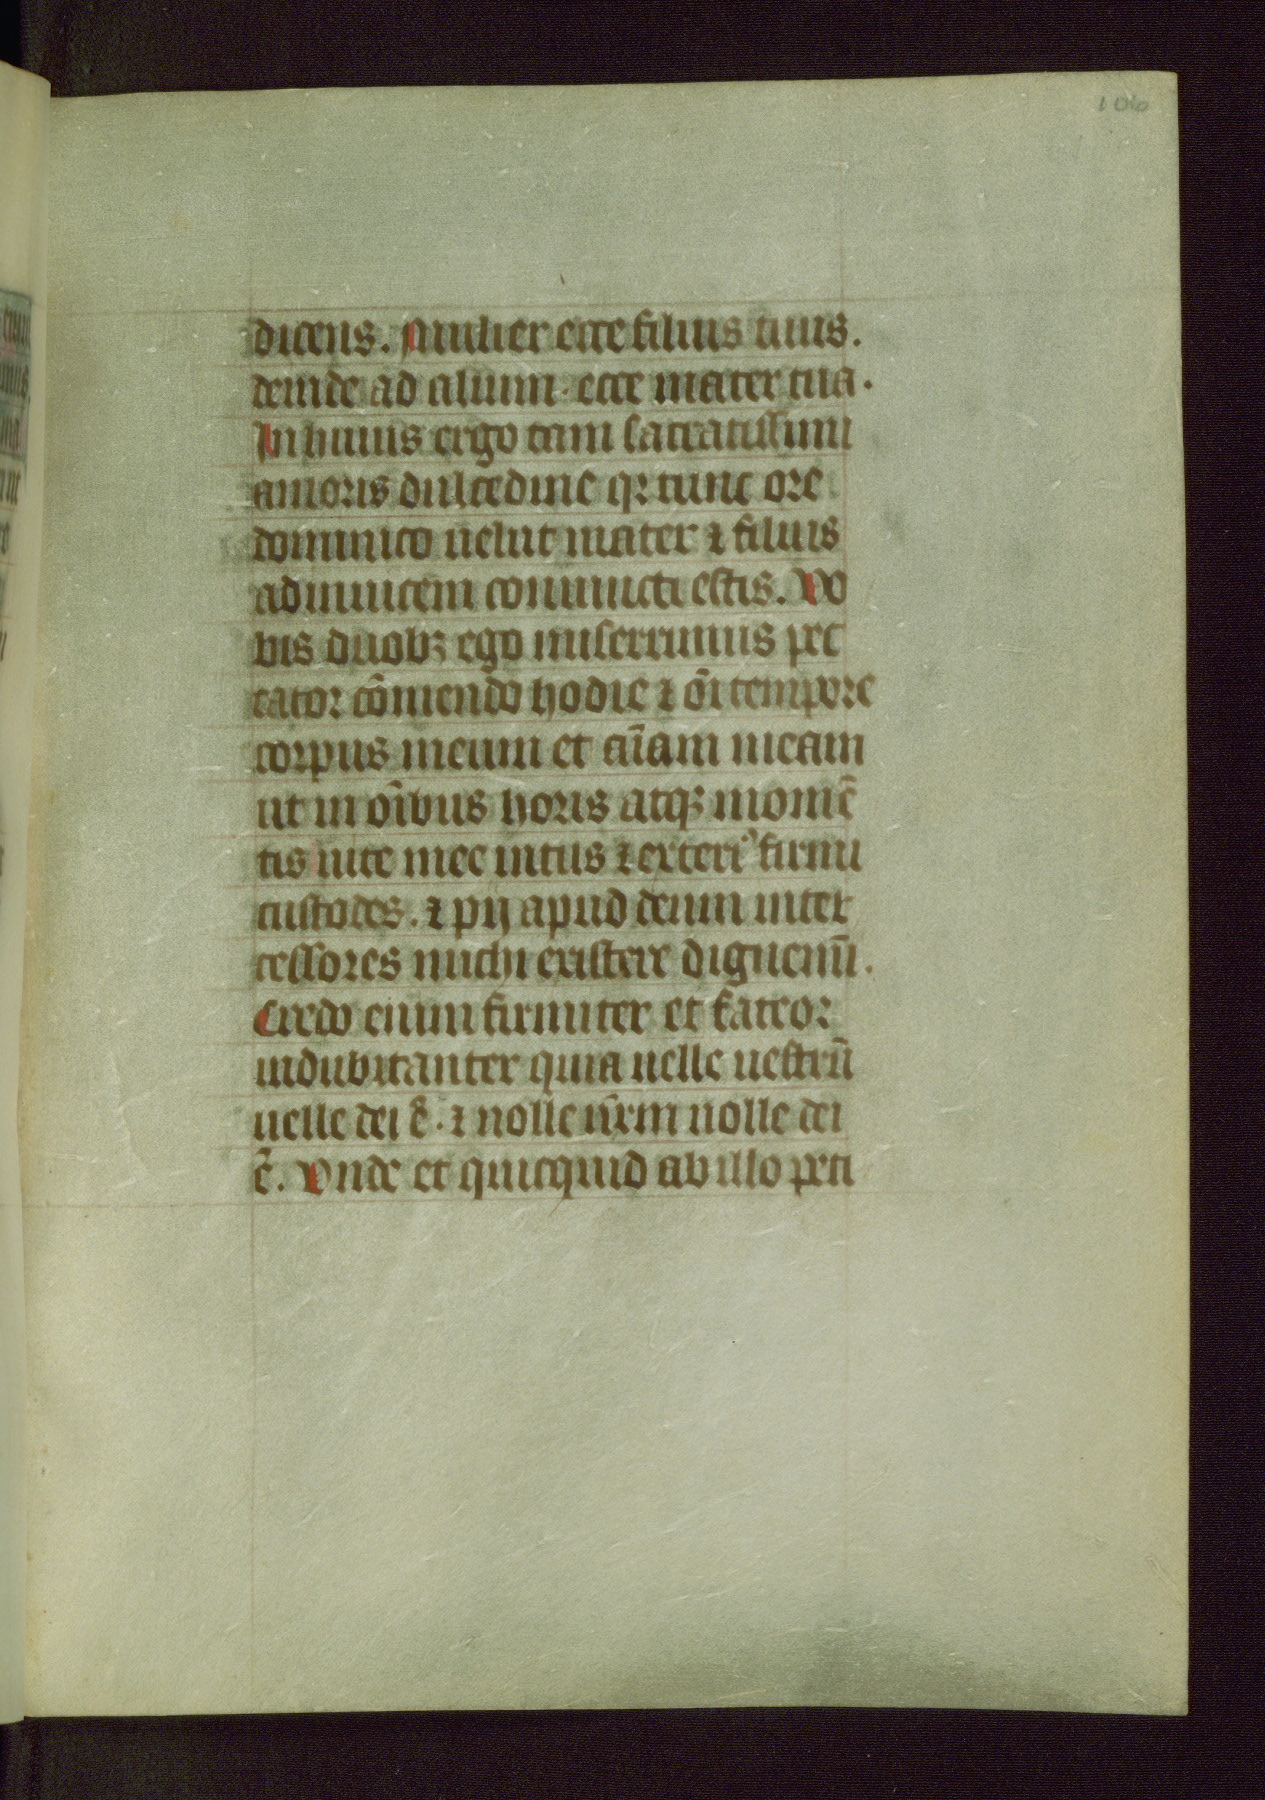 106
dicens. Mulier ecce filius tuus.
deinde ad alium. ecce mater tua.
In huius ergo tam sacratissimi
amoris dulcedine qꝛ tunc ore
dominico uelut mater ⁊ filius
adinuicem coniuncti estis. Vo
bis duobꝫ ego miserrimus pec
cator cōmendo hodie ⁊ oī tempore
corpus meum et aīam meam
ut in oībus horis atqꝫ momē
tis uite mee intus ⁊ exteriꝰ firmi
custodes. ⁊ pij apud deum inter
cessores michi existere dignemī.
Credo enim firmiter et fateor
indubitanter quia uelle uestrū
uelle dei ē. ⁊ nolle ūrm nolle dei
ē. Vnde et quicquid ab illo peti